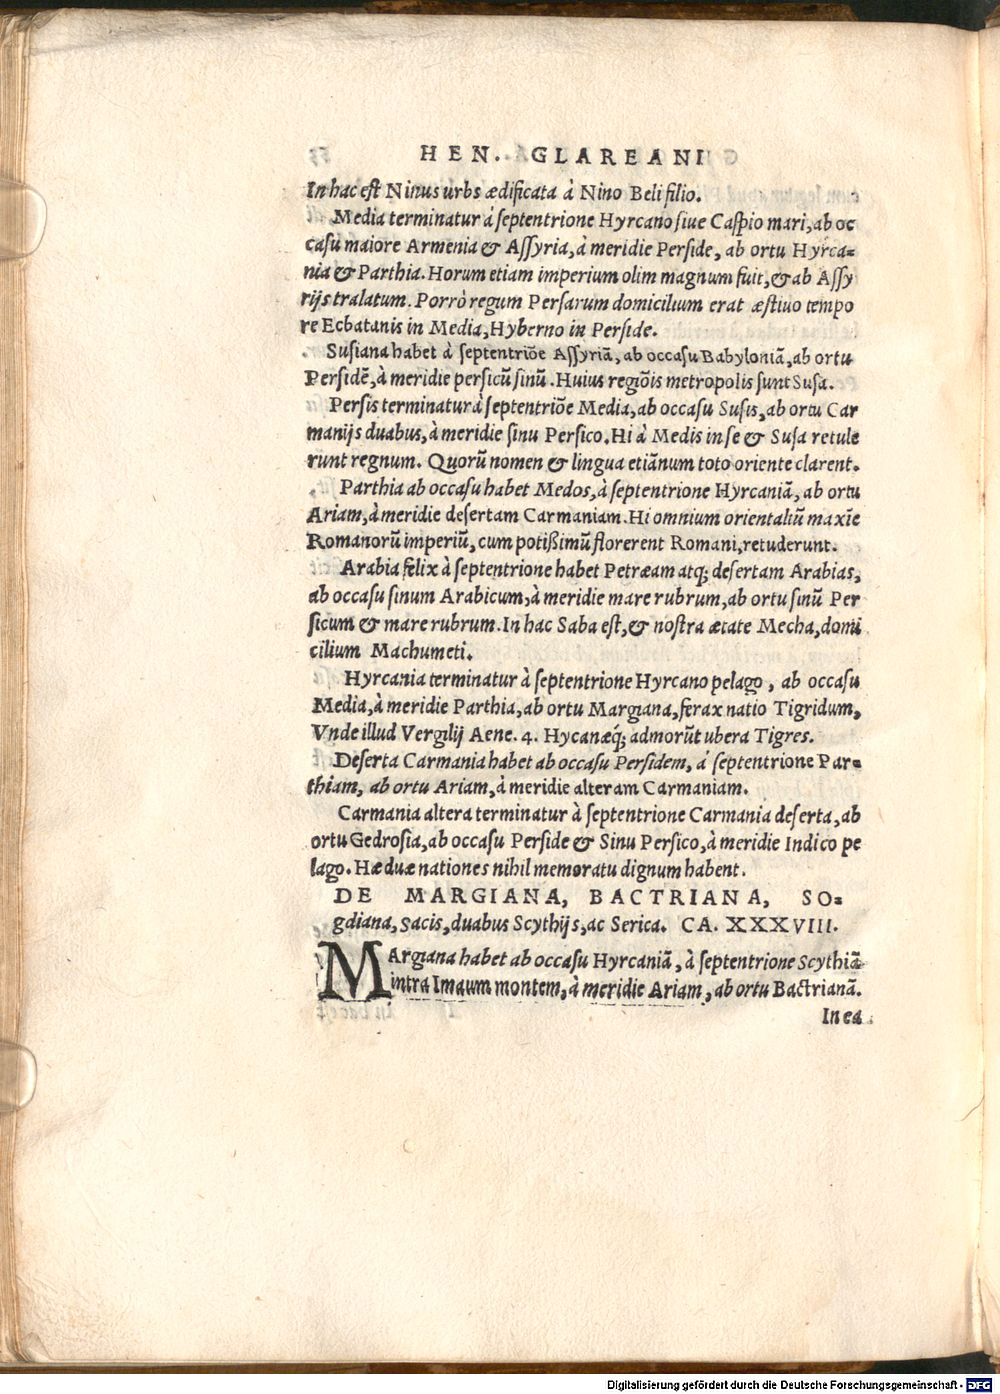 HEN. GLAREANI
In hac eſt Ninus urbs ædificata à Nino Beli filio.
Media terminatur à ſeptentrione Hyrcano ſiue Caſpio mari, ab oc
caſu maiore Armenia & Aſſyria, à meridie Perſide, ab ortu Hyrca=
nia & Parthia. Horum etiam imperium olim magnum fuit, & ab Aſſy
rijs tralatum. Porrò regum Perſarum domicilium erat æſtiuo tempo
re Ecbatanis in Media, Hyberno in Perſide.
Suſiana habet à ſeptentriōe Aſſyriā, ab occaſu Babyloniā, ab ortu
Perſidē, à meridie perſicū ſinū. Huius regiōis metropolis ſunt Suſa.
Perſis terminatur à ſeptentriōe Media, ab occaſu Suſis, ab ortu Car
manijs duabus, à meridie ſinu Perſico. Hi à Medis in ſe & Suſa retule
runt regnum. Quorū nomen & lingua etiānum toto oriente clarent.
Parthia ab occaſu habet Medos, à ſeptentrione Hyrcaniā, ab ortu
Ariam, à meridie deſertam Carmaniam. Hi omnium orientaliū maxīe
Romanorū imperiū, cum potißimū florerent Romani, retuderunt.
Arabia felix à ſeptentrione habet Petræam atq; deſertam Arabias,
ab occaſu ſinum Arabicum, à meridie mare rubrum, ab ortu ſinū Per
ſicum & mare rubrum. In hac Saba eſt, & noſtra ætate Mecha, domi
cilium Machumeti.
Hyrcania terminatur à ſeptentrione Hyrcano pelago, ab occaſu
Media, à meridie Parthia, ab ortu Margiana, ferax natio Tigridum,
Vnde illud Vergilij Aene. 4. Hycanæq́; admorūt ubera Tigres.
Deſerta Carmania habet ab occaſu Perſidem, à ſeptentrione Par=
thiam, ab ortu Ariam, à meridie alteram Carmaniam.
Carmania altera terminatur à ſeptentrione Carmania deſerta, ab
ortu Gedroſia, ab occaſu Perſide & Sinu Perſico, à meridie Indico pe
lago. Hæ duæ nationes nihil memoratu dignum habent.
DE MARGIANA, BACTRIANA, SO=
gdiana, Sacis, duabus Scythijs, ac Serica. CA. XXXVIII.
MArgiana habet ab occaſu Hyrcaniā, à ſeptentrione Scythiā
intra Imaum montem, à meridie Ariam, ab ortu Bactrianā.
In ea
Digitalisierung gefördert durch die Deutsche Forschungsgemeinschaft - DFG